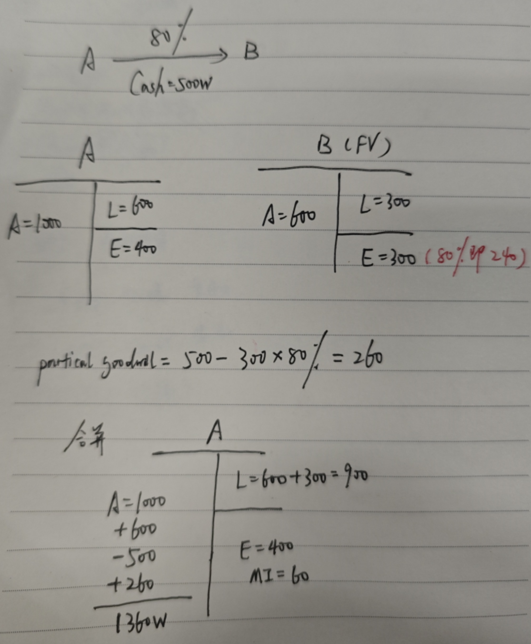 80%
A → B
Cash=500W
A
A=1000
L=600
E=400
B (FV)
A=600
L=300
E=300 (80%即240)
partical goodwill = 500 - 300×80% = 260
合并
A
A=1000
+600
-500
+260
1360W
L=600+300=900
E=400
MI=60